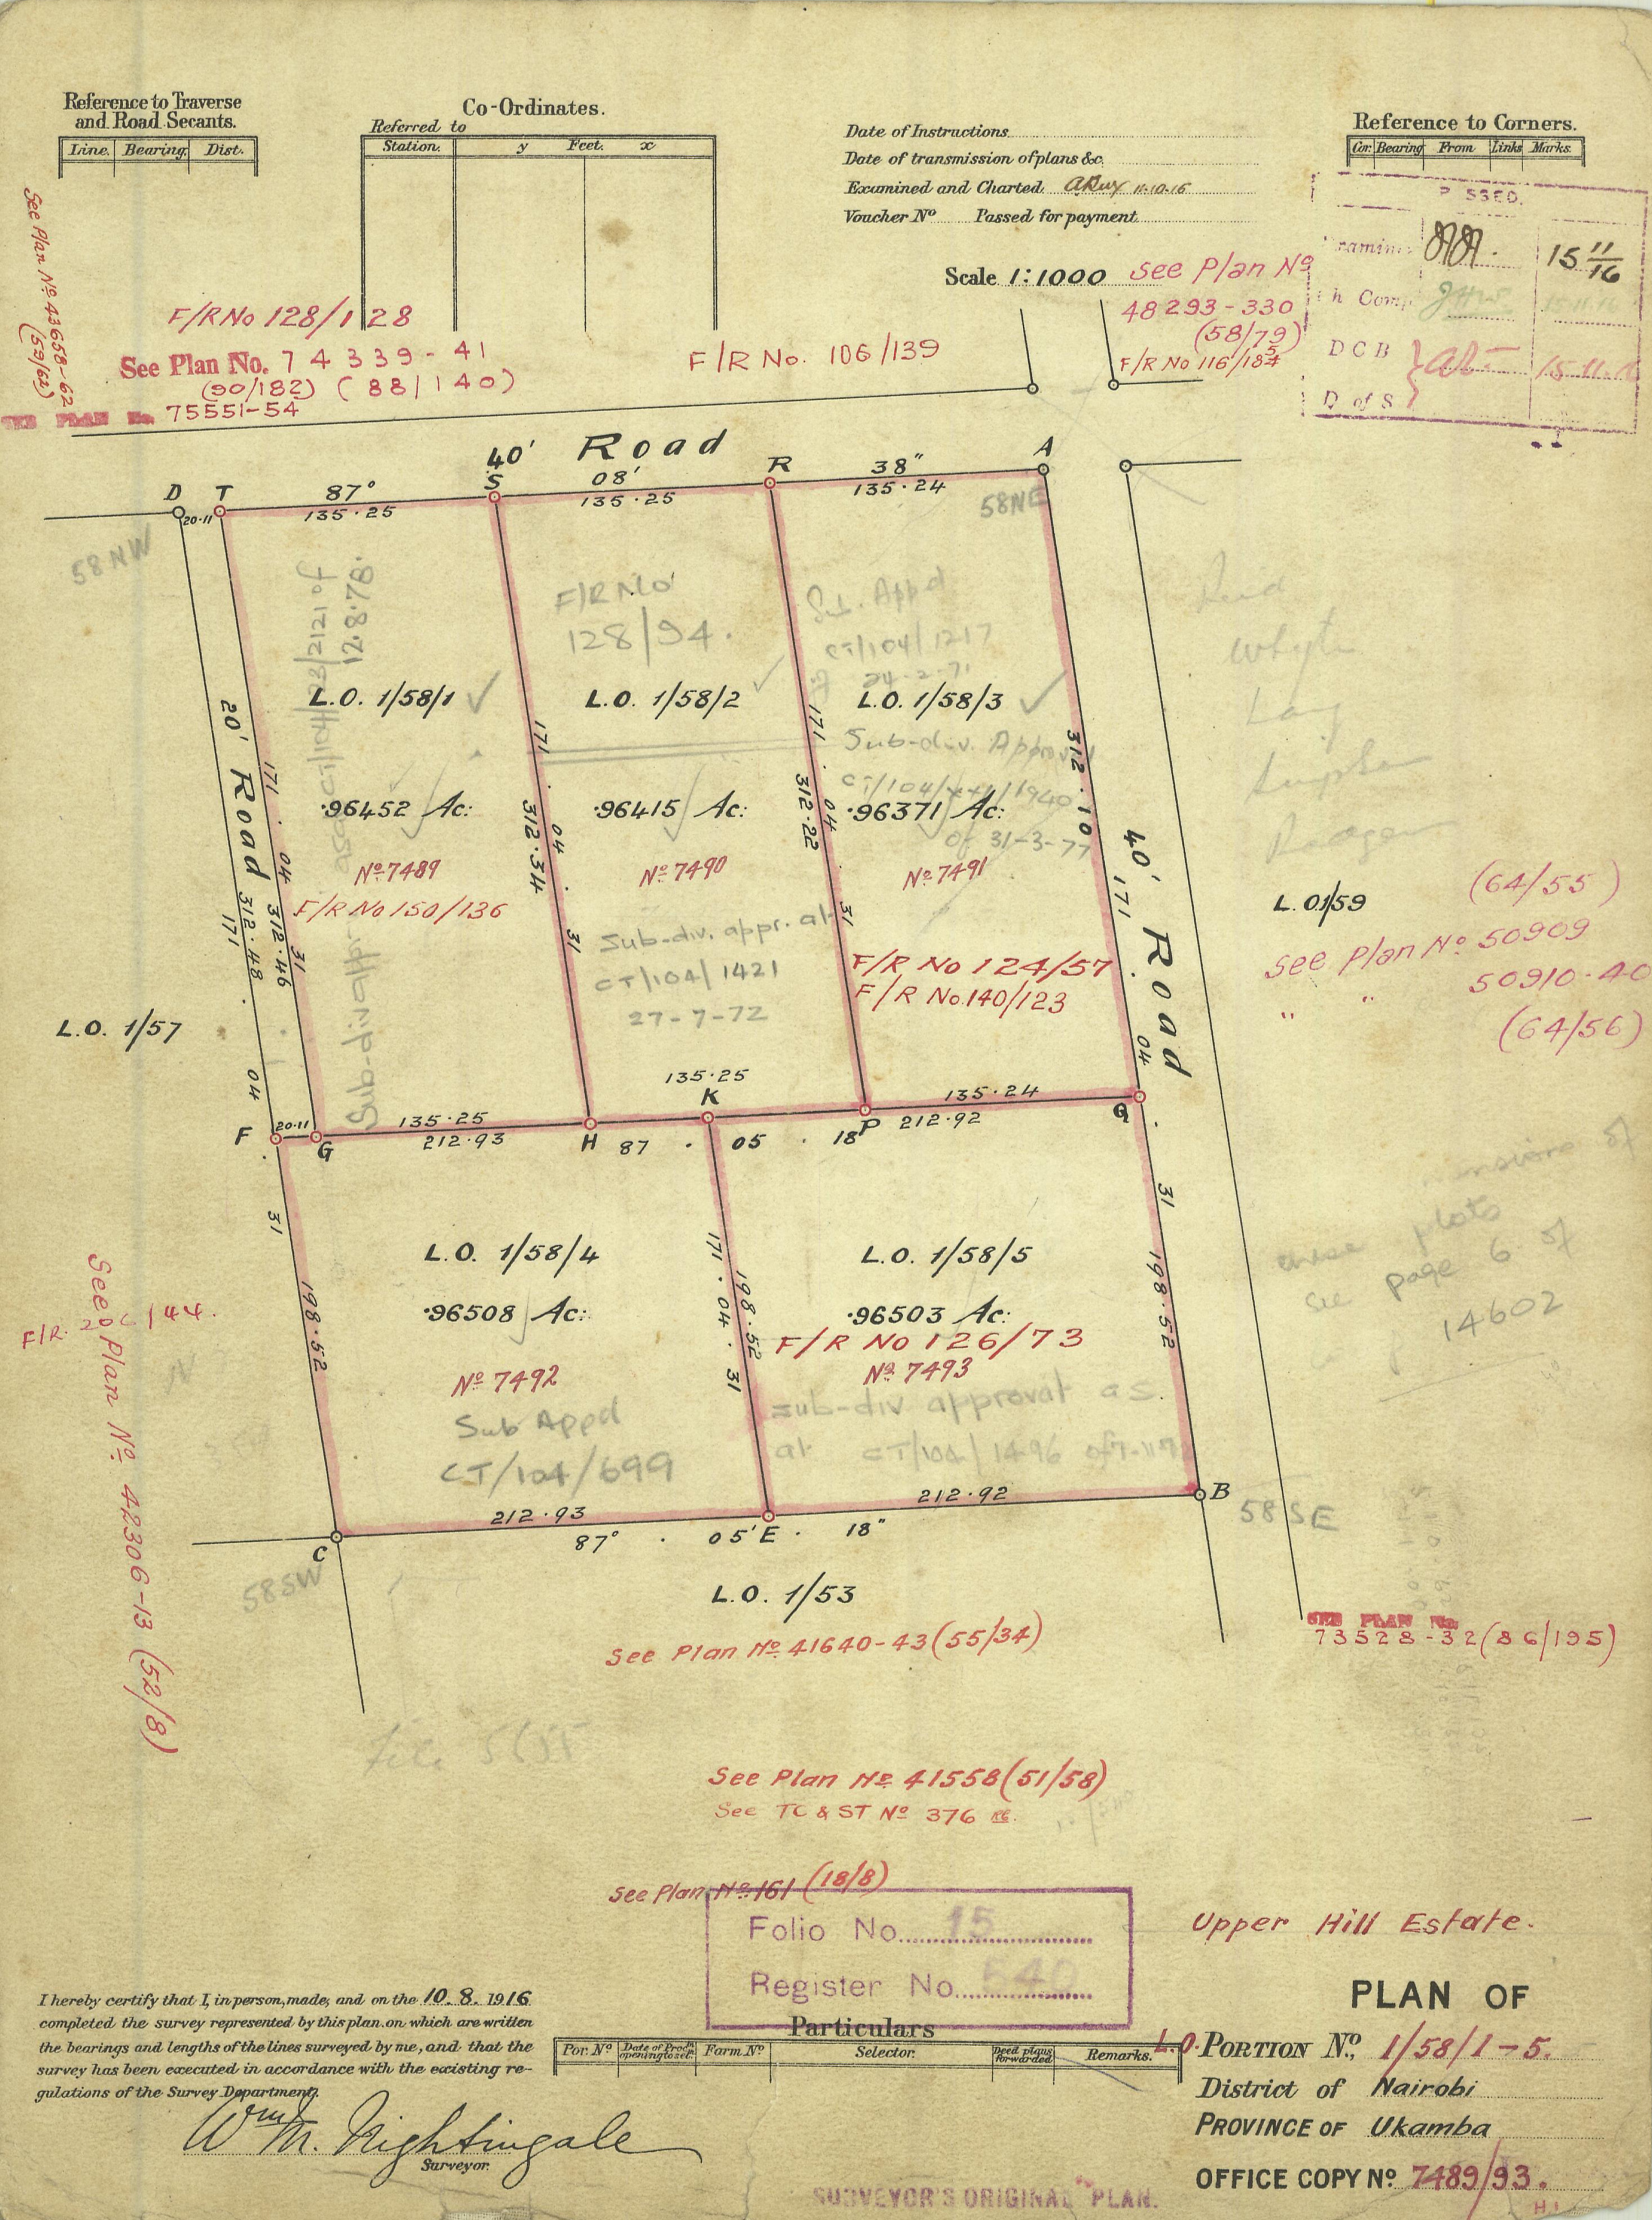 Reference to Traverse
and Road Secants.
Line. Bearing. Dist.
Co-Ordinates.
Referred to
Station. y Feet. x
Date of Instructions
Date of transmission of plans &c.
Examined and Charted. 11-10-16
Voucher No Passed for payment
Reference to Corners.
Cor. Bearing From Links Marks.
Scale 1:1000
See Plan No
48293-330
(58/79)
F/R No 116/184
5
15 11/16
D C B
15-11-16
D of S
See Plan No. 43658-62
(59/62)
F/R No 128/128
See Plan No. 74339-41
(90/182) (88/140)
SEE PLAN No. 75551-54
F/R No. 106/139
40' Road
D T 87° S 08' R 38" A
20·11 135·25 135·25 135·24
58NW
58NE
Sub-div appr. 12.8.78.
F/R No
128/94.
Sub. Appd
CT/104/1217
24-2-71
L.O. 1/58/1
L.O. 1/58/2
L.O. 1/58/3
Sub-div. Approved
of 31-3-77
·96452 Ac:
·96415 Ac:
·96371 Ac:
No 7489
No 7490
No 7491
F/R No 150/136
Sub-div. appr. at
CT/104/1421
27-7-72
F/R No 124/57
F/R No. 140/123
20' Road
171 · 04 · 31
312·48
171 · 04 · 31
312·46
171 · 04 · 31
312·34
171 · 04 · 31
312·22
312·10
171 · 04 · 31
40' Road
L.O. 1/57
L.O. 1/59
(64/55)
See Plan No 50909
" 50910-40
(64/56)
135·25
135·25 K 135·24
F 20·11 G 212·93 H 87 · 05 · 18 P 212·92 Q
L.O. 1/58/4
L.O. 1/58/5
·96508 Ac:
·96503 Ac:
F/R No 126/73
No 7492
No 7493
Sub Appd
CT/104/699
sub-div approval as
at CT/104/1496
198·52
171 · 04 · 31
198·52
198·52
plots
see page 6 of
14602
F/R. 144.
See Plan No 42306-13 (52/8)
212·93
212·92
C 87° · 05' E · 18" B
58SW
58SE
L.O. 1/53
See Plan No 41640-43 (55/34)
SEE PLAN No.
73528-32 (86/195)
See Plan No 41558 (51/58)
See TC & ST No 376
See Plan No 161 (18/8)
Folio No. 15
Register No. 540
Upper Hill Estate.
I hereby certify that I, in person, made, and on the 10. 8. 1916
completed the survey represented by this plan on which are written
the bearings and lengths of the lines surveyed by me, and that the
survey has been executed in accordance with the existing re-
gulations of the Survey Department.
Wm M. Nightingale
Surveyor.
Particulars
Por. No Farm No Selector. Deed plans forwarded Remarks.
PLAN OF
L.O. PORTION No. 1/58/1-5.
District of Nairobi
PROVINCE OF Ukamba
OFFICE COPY No. 7489/93.
SURVEYOR'S ORIGINAL PLAN.